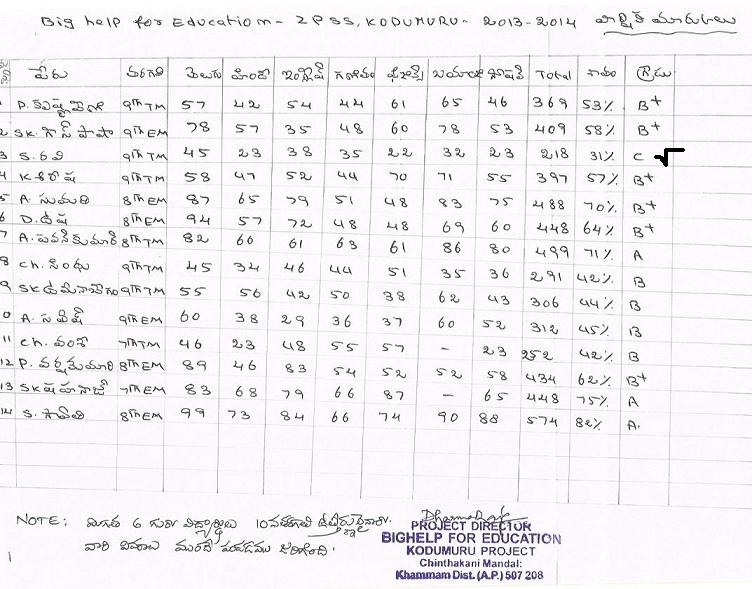 Big help for Education - ZPSS, KODUMURU - 2013-2014 వార్షిక మార్కులు
పేరు తరగతి తెలుగు హిందీ ఇంగ్లీష్ గణితం ఫిజిక్స్ బయాలజీ సోషల్ Total శాతం గ్రేడు
P. 9th TM 57 42 54 44 61 65 46 369 53% B+
2 SK. పాషా 9th EM 78 57 35 48 60 78 53 409 58% B+
3 S. రవి 9th TM 45 23 38 35 22 32 23 218 31% C √
4 K. 9th TM 58 47 52 44 70 71 55 397 57% B+
5 A. సుమలి 8th EM 87 65 79 51 48 83 75 488 70% B+
6 D. ఉష 8th EM 94 57 72 48 48 69 60 448 64% B+
7 A. పవన్ కుమార్ 8th TM 82 66 61 63 61 86 80 499 71% A
8 Ch. సింధు 9th TM 45 34 46 44 51 35 36 291 42% B
9 SK 9th TM 55 56 42 50 38 62 43 306 44% B
0 A. 9th EM 60 38 29 36 37 60 52 312 45% B
11 Ch. వంశీ 7th TM 46 23 48 55 57 - 23 252 42% B
12 P. 8th EM 89 46 83 54 52 52 58 434 62% B+
13 SK షహనాజ్ 7th EM 83 68 79 66 87 - 65 448 75% A
14 S. 8th EM 99 73 84 66 74 90 88 574 82% A.
NOTE: మిగతా 6 గురు విద్యార్థులు 10వ తరగతి ఉత్తీర్ణులైనారు.
వారి వివరాలు ముందే పంపడము జరిగింది.
PROJECT DIRECTOR
BIGHELP FOR EDUCATION
KODUMURU PROJECT
Chinthakani Mandal:
Khammam Dist. (A.P.) 507 208